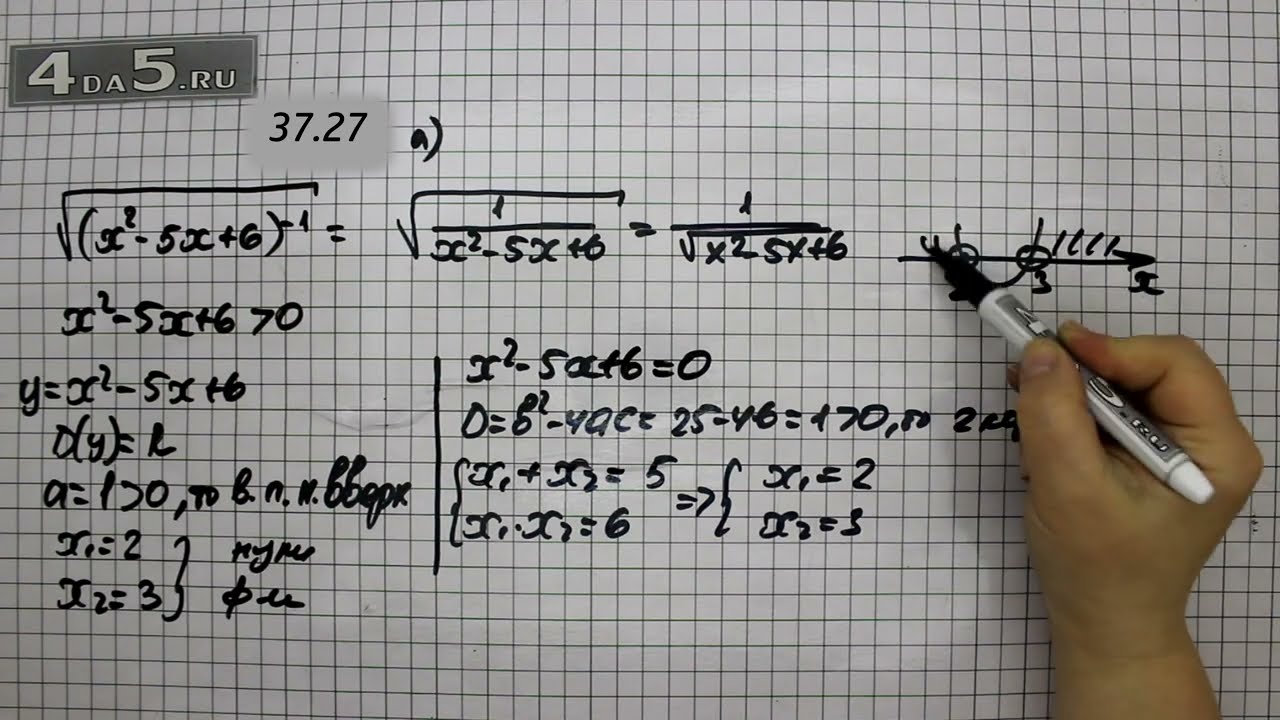 4DA5.RU
37.27 а)
√(x²-5x+6)⁻¹ = √1/(x²-5x+6) = 1/√x2-5x+6
3 x
x²-5x+6>0
y=x²-5x+6
D(y)=R
a=1>0, то в.п.н.вверх
x₁=2
x₂=3 } нули
ф-и
x²-5x+6=0
D=b²-4ac=25-46=1>0, то 2
{ x₁+x₂=5
x₁·x₂=6 => { x₁=2
x₂=3
4
5
.RU